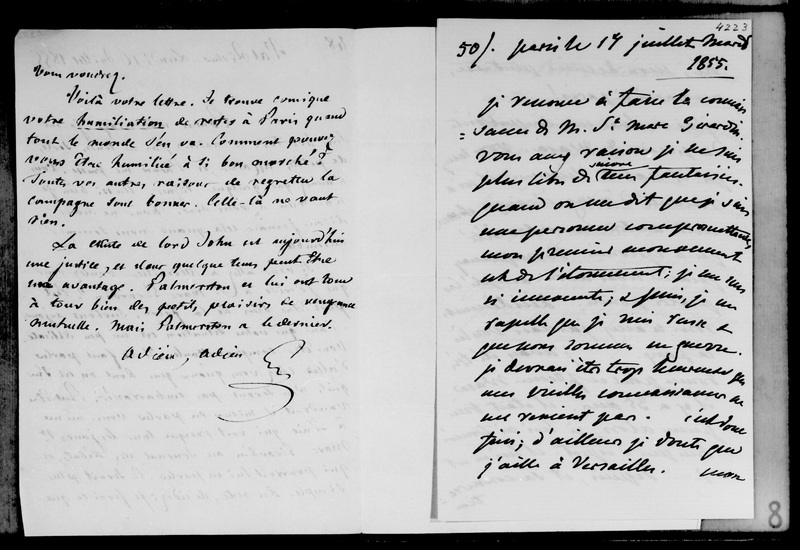 vous voudrez.
Voilà votre lettre. Je trouve comique
votre humiliation de rester à Paris quand
tout le monde s'en va. Comment pouvez
vous être humiliée à si bon marché ?
Toutes vos autres raisons de regretter la
campagne sont bonnes. Celle-là ne vaut
rien.
La chute de lord John est aujourd'hui
une justice, et dans quelque tems peut être
un avantage. Palmerston et lui ont tour
à tour bien des petits plaisirs de vengeance
mutuelle. Mais Palmerston a le dernier.
Adieu, adieu
4223
50/. paris le 17 juillet mardi
1855.
je renonce à faire la connais
=sance de M. St Marc Girardin.
vous avez raison je ne suis
plus libre de suivre fantaisies.
quand on me dit que je suis
une personne compromettante,
mon premier mouvement
est de l'étonnement; je me sens
si innocente; & puis, je me
rappelle que je suis russe &
que nous sommes en guerre.
je devrais être trop heureuse que
mes vieilles connaissances ne
me renient pas. c'est donc
fini; d'ailleurs je doute que
j'aille à Versailles. mon
8